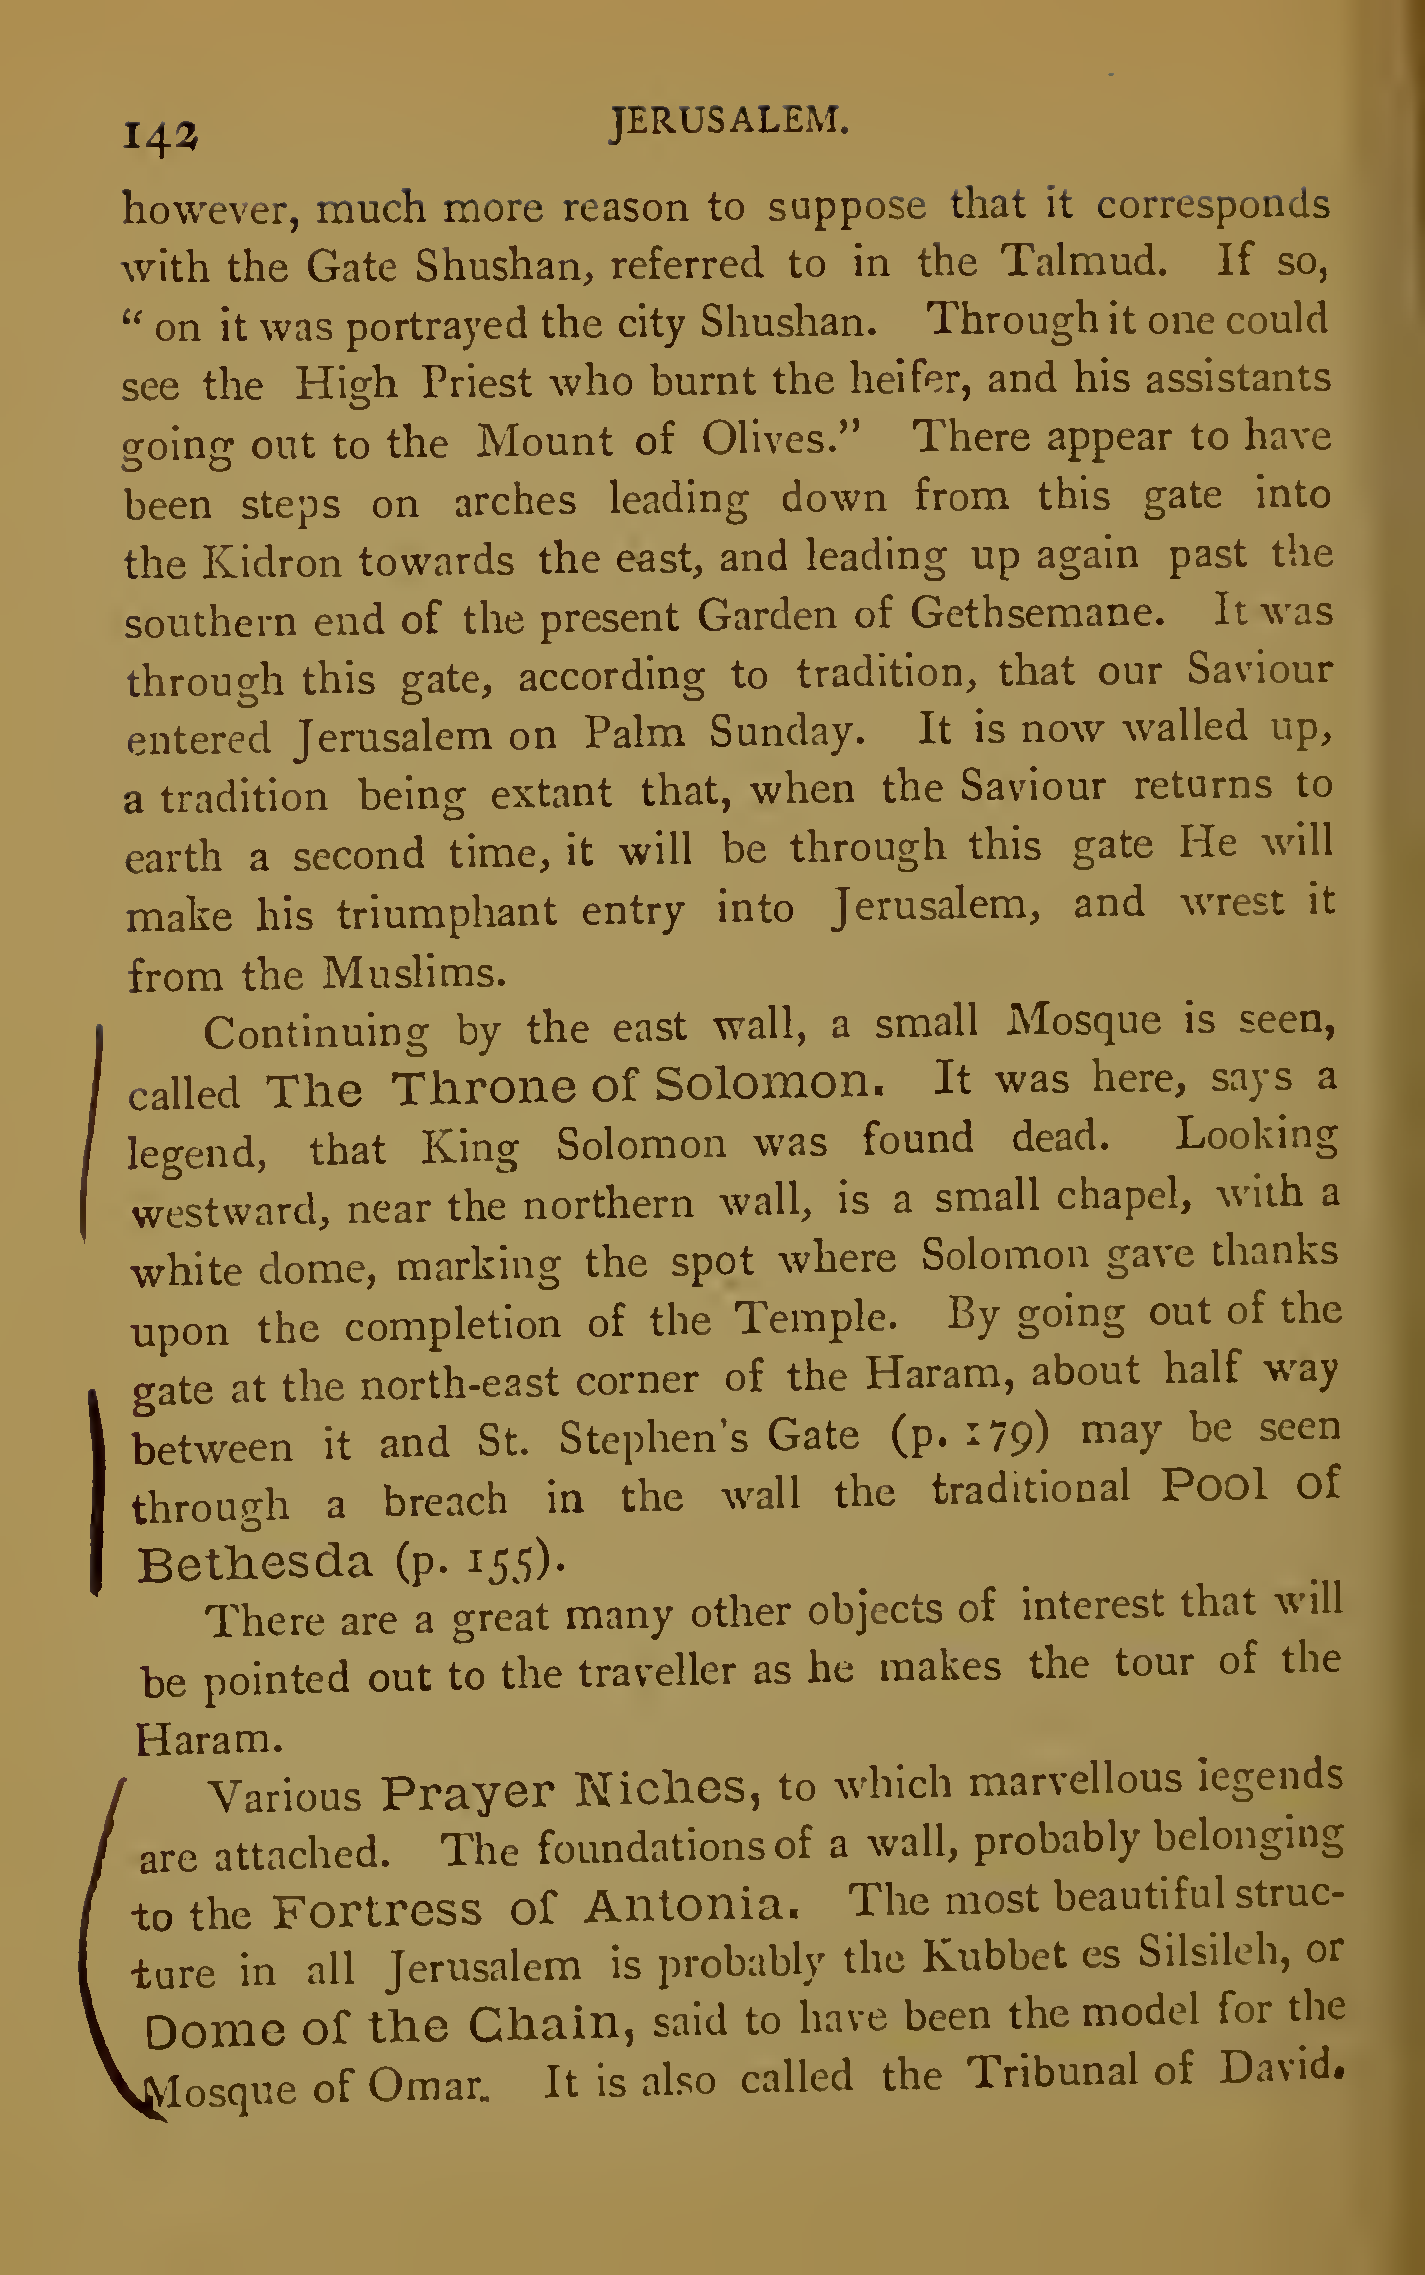 142
JERUSALEM.
however, much more reason to suppose that it corresponds
with the Gate Shushan, referred to in the Talmud. If so,
“ on it was portrayed the city Shushan. Through it one could
see the High Priest who burnt the heifer, and his assistants
going out to the Mount of Olives.” There appear to have
been steps on arches leading down from this gate into
the Kidron towards the east, and leading up again past the
southern end of the present Garden of Gethsemane. It was
through this gate, according to tradition, that our Saviour
entered Jerusalem on Palm Sunday. It is now walled up,
a tradition being extant that, when the Saviour returns to
earth a second time, it will be through this gate He will
make his triumphant entry into Jerusalem, and wrest it
from the Muslims.
Continuing by the east wall, a small Mosque is seen,
called The Throne of Solomon. It was here, says a
legend, that King Solomon was found dead. Looking
westward, near the northern wall, is a small chapel, with a
white dome, marking the spot where Solomon gave thanks
upon the completion of the Temple. By going out of the
gate at the north-east corner of the Haram, about half way
between it and St. Stephen's Gate (p. 179) may be seen
through a breach in the wall the traditional Pool of
Bethesda (p. 155).
There are a great many other objects of interest that will
be pointed out to the traveller as he makes the tour of the
Haram.
Various Prayer Niches, to which marvellous legends
are attached. The foundations of a wall, probably belonging
to the Fortress of Antonia. The most beautiful struc-
ture in all Jerusalem is probably the Kubbet es Silsileh, or
Dome of the Chain, said to have been the model for the
Mosque of Omar. It is also called the Tribunal of David.